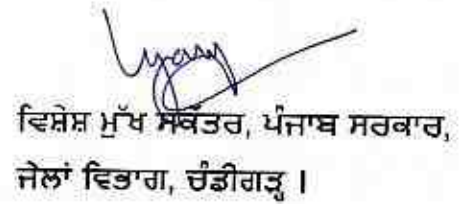 ਵਿਸ਼ੇਸ਼ ਮੁੱਖ ਸਕੱਤਰ, ਪੰਜਾਬ ਸਰਕਾਰ,
ਜੇਲਾਂ ਵਿਭਾਗ, ਚੰਡੀਗੜ੍ਹ ।